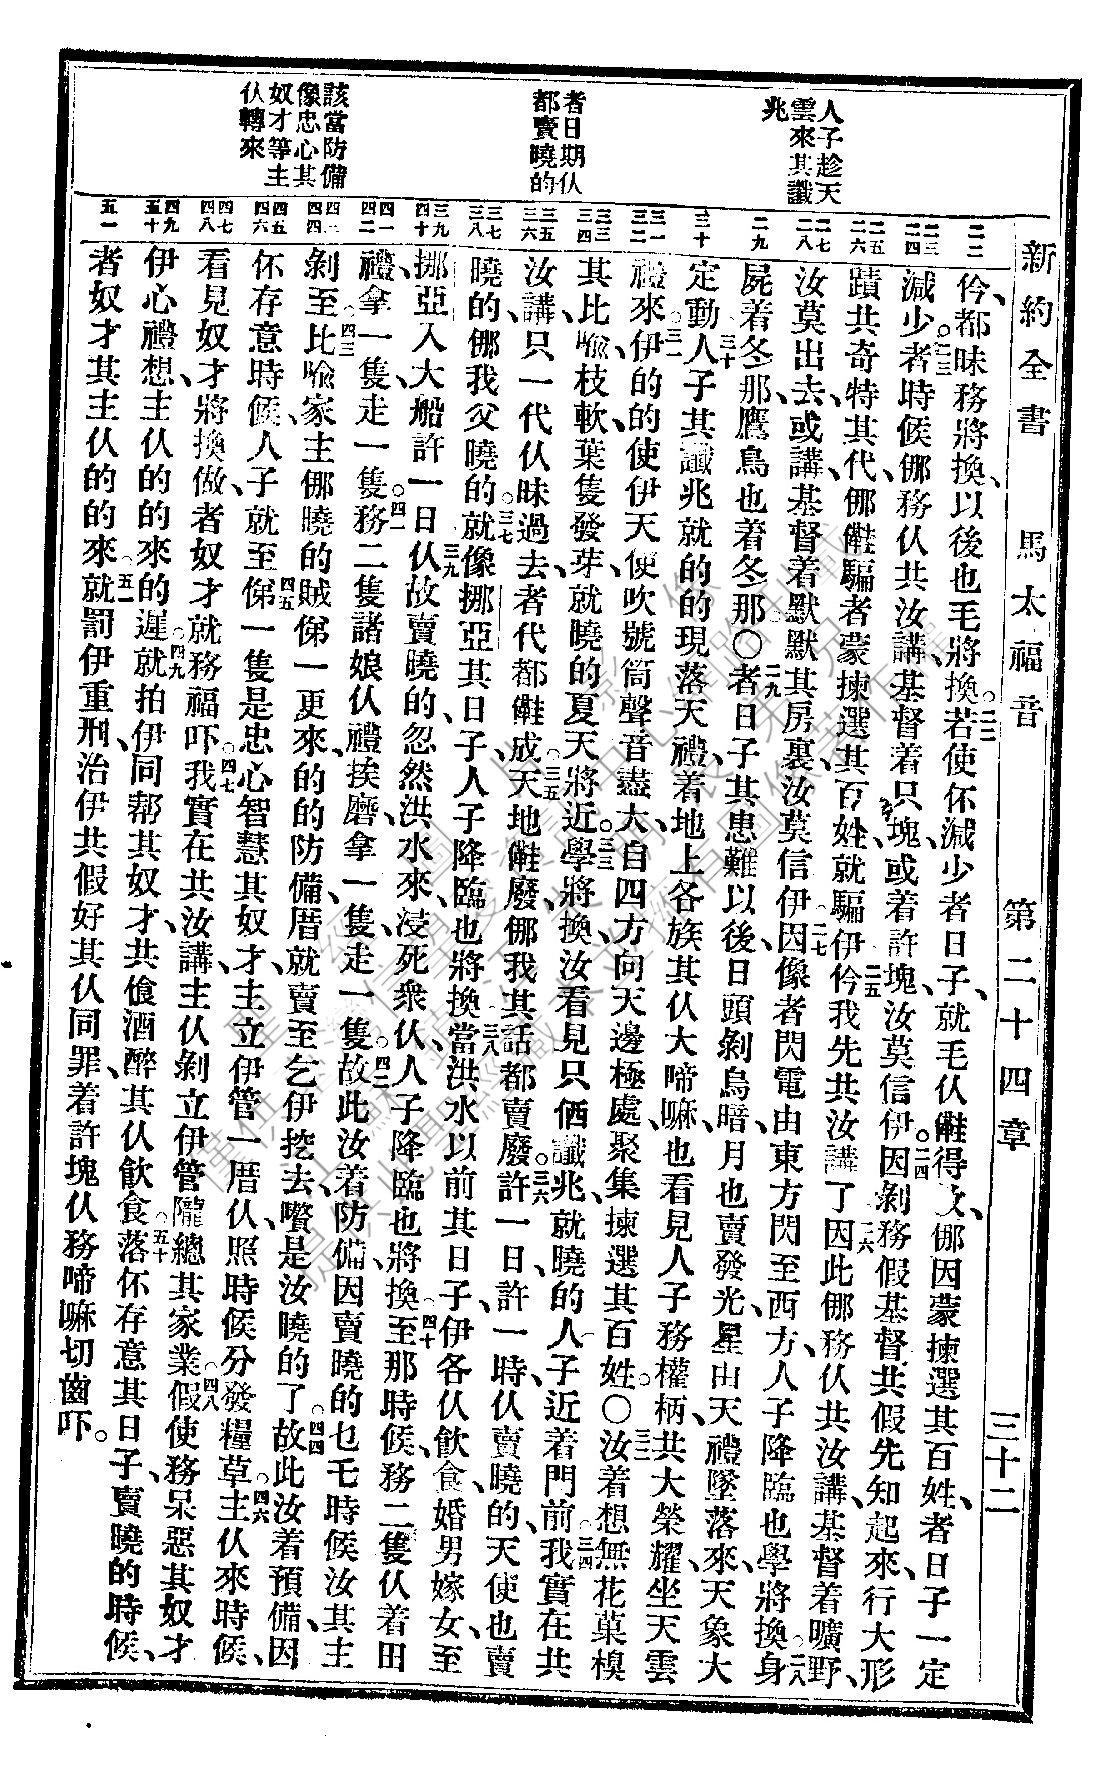 新約全書 馬太福音 第二十四章 三十二
人子趁天
雲來其讖
兆
者日期仈
都賣曉的
該當防備
像忠心其
奴才等主
仈轉來
二二
二三 二四
二五 二六
二七 二八
二九
三十
三一 三二
三三 三四
三五 三六
三七 三八
三九 四十
四一 四二
四三 四四
四五 四六
四七 四八
四九 五十
五一
仱、都昧務將換、以後也毛將換。二二若使伓減少者日子、就毛仈㑚得救、𠆧因蒙揀選其百姓、者日子一定
減少。二三者時候、𠆧務仈共汝講、基督着只塊、或着許塊、汝莫信伊。二四因剝務假基督共假先知起來、行大形
蹟共奇特其代、𠆧㑚騙者蒙揀選其百姓、就騙伊。二五仱我先共汝講了。二六因此𠆧務仈共汝講、基督着曠野、
汝莫出去、或講基督着默默其房裏、汝莫信伊。二七因像者閃電由東方閃至西方、人子降臨也學將換。二八身
屍着冬那、鷹鳥也着冬那〇二九者日子其患難以後、日頭剝烏暗、月也賣發光、星由天禮墜落來、天象大
定動。三十人子其讖兆就的的現落天禮、着地上各族其仈大啼嘛、也看見人子務權柄共大榮耀、坐天雲
禮來。三一伊的的使伊天使吹號筒聲音盡大、自四方向天邊極處、聚集揀選其百姓〇三二汝着想無花菓模
其比喩、枝軟葉隻發芽、就曉的夏天將近。三三學將換汝看見只個讖兆、就曉的人子近着門前。三四我實在共
汝講、只一代仈昧過去、者代都㑚成。三五天地㑚廢、𠆧我其話都賣廢。三六許一日、許一時、仈賣曉的、天使也賣
曉的、𠆧我父曉的。三七就像挪亞其日子、人子降臨也將換。三八當洪水以前其日子、伊各仈飲、食、婚男嫁女、至
挪亞入大船許一日、三九仈故賣曉的、忽然洪水來、浸死衆仈、人子降臨也將換。四十至那時候、務二隻仈着田
禮、拿一隻、走一隻。四一務二隻諸娘仈禮挨磨、拿一隻、走一隻。四二故此汝着防備、因賣曉的乜乇時候汝其主
剝至。四三比喩家主𠆧曉的賊俤一更來、的的防備厝、就賣至乞伊挖去、嚽是汝曉的了。四四故此汝着預備、因
伓存意時候、人子就至。四五俤一隻是忠心智慧其奴才、主立伊管一厝仈、照時候分發糧草。四六主仈來時候、
看見奴才將換做、者奴才就務福吓。四七我實在共汝講、主仈剝立伊管隴總其家業。四八假使務呆惡其奴才、
伊心禮想、主仈的的來的遲、四九就拍伊同帮其奴才、共飱酒醉其仈飲食、五十落伓存意其日子、賣曉的時候、
者奴才其主仈的的來、五一就罰伊重刑、治伊共假好其仈同罪、着許塊仈務啼嘛切齒吓。